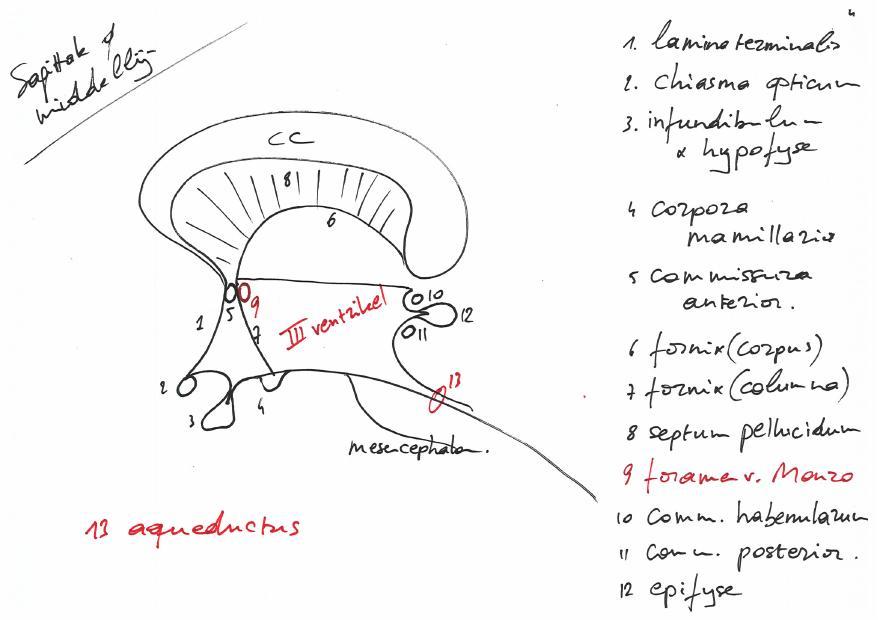 4
Sagittale
middellij-
CC
8
6
5
9
1
7
III ventrikel
10
12
11
2
3
4
13
mesencephalon.
13 aqueductus
1. lamina terminalis
2. chiasma opticum
3. infundibulum
hypofyse
4 corpora
mamillaria
5 commissura
anterior.
6 fornix (corpus)
7 fornix (columna)
8 septum pellucidum
9 foramen v. Monro
10 Comm. habenularum
11 Comm. posterior.
12 epifyse